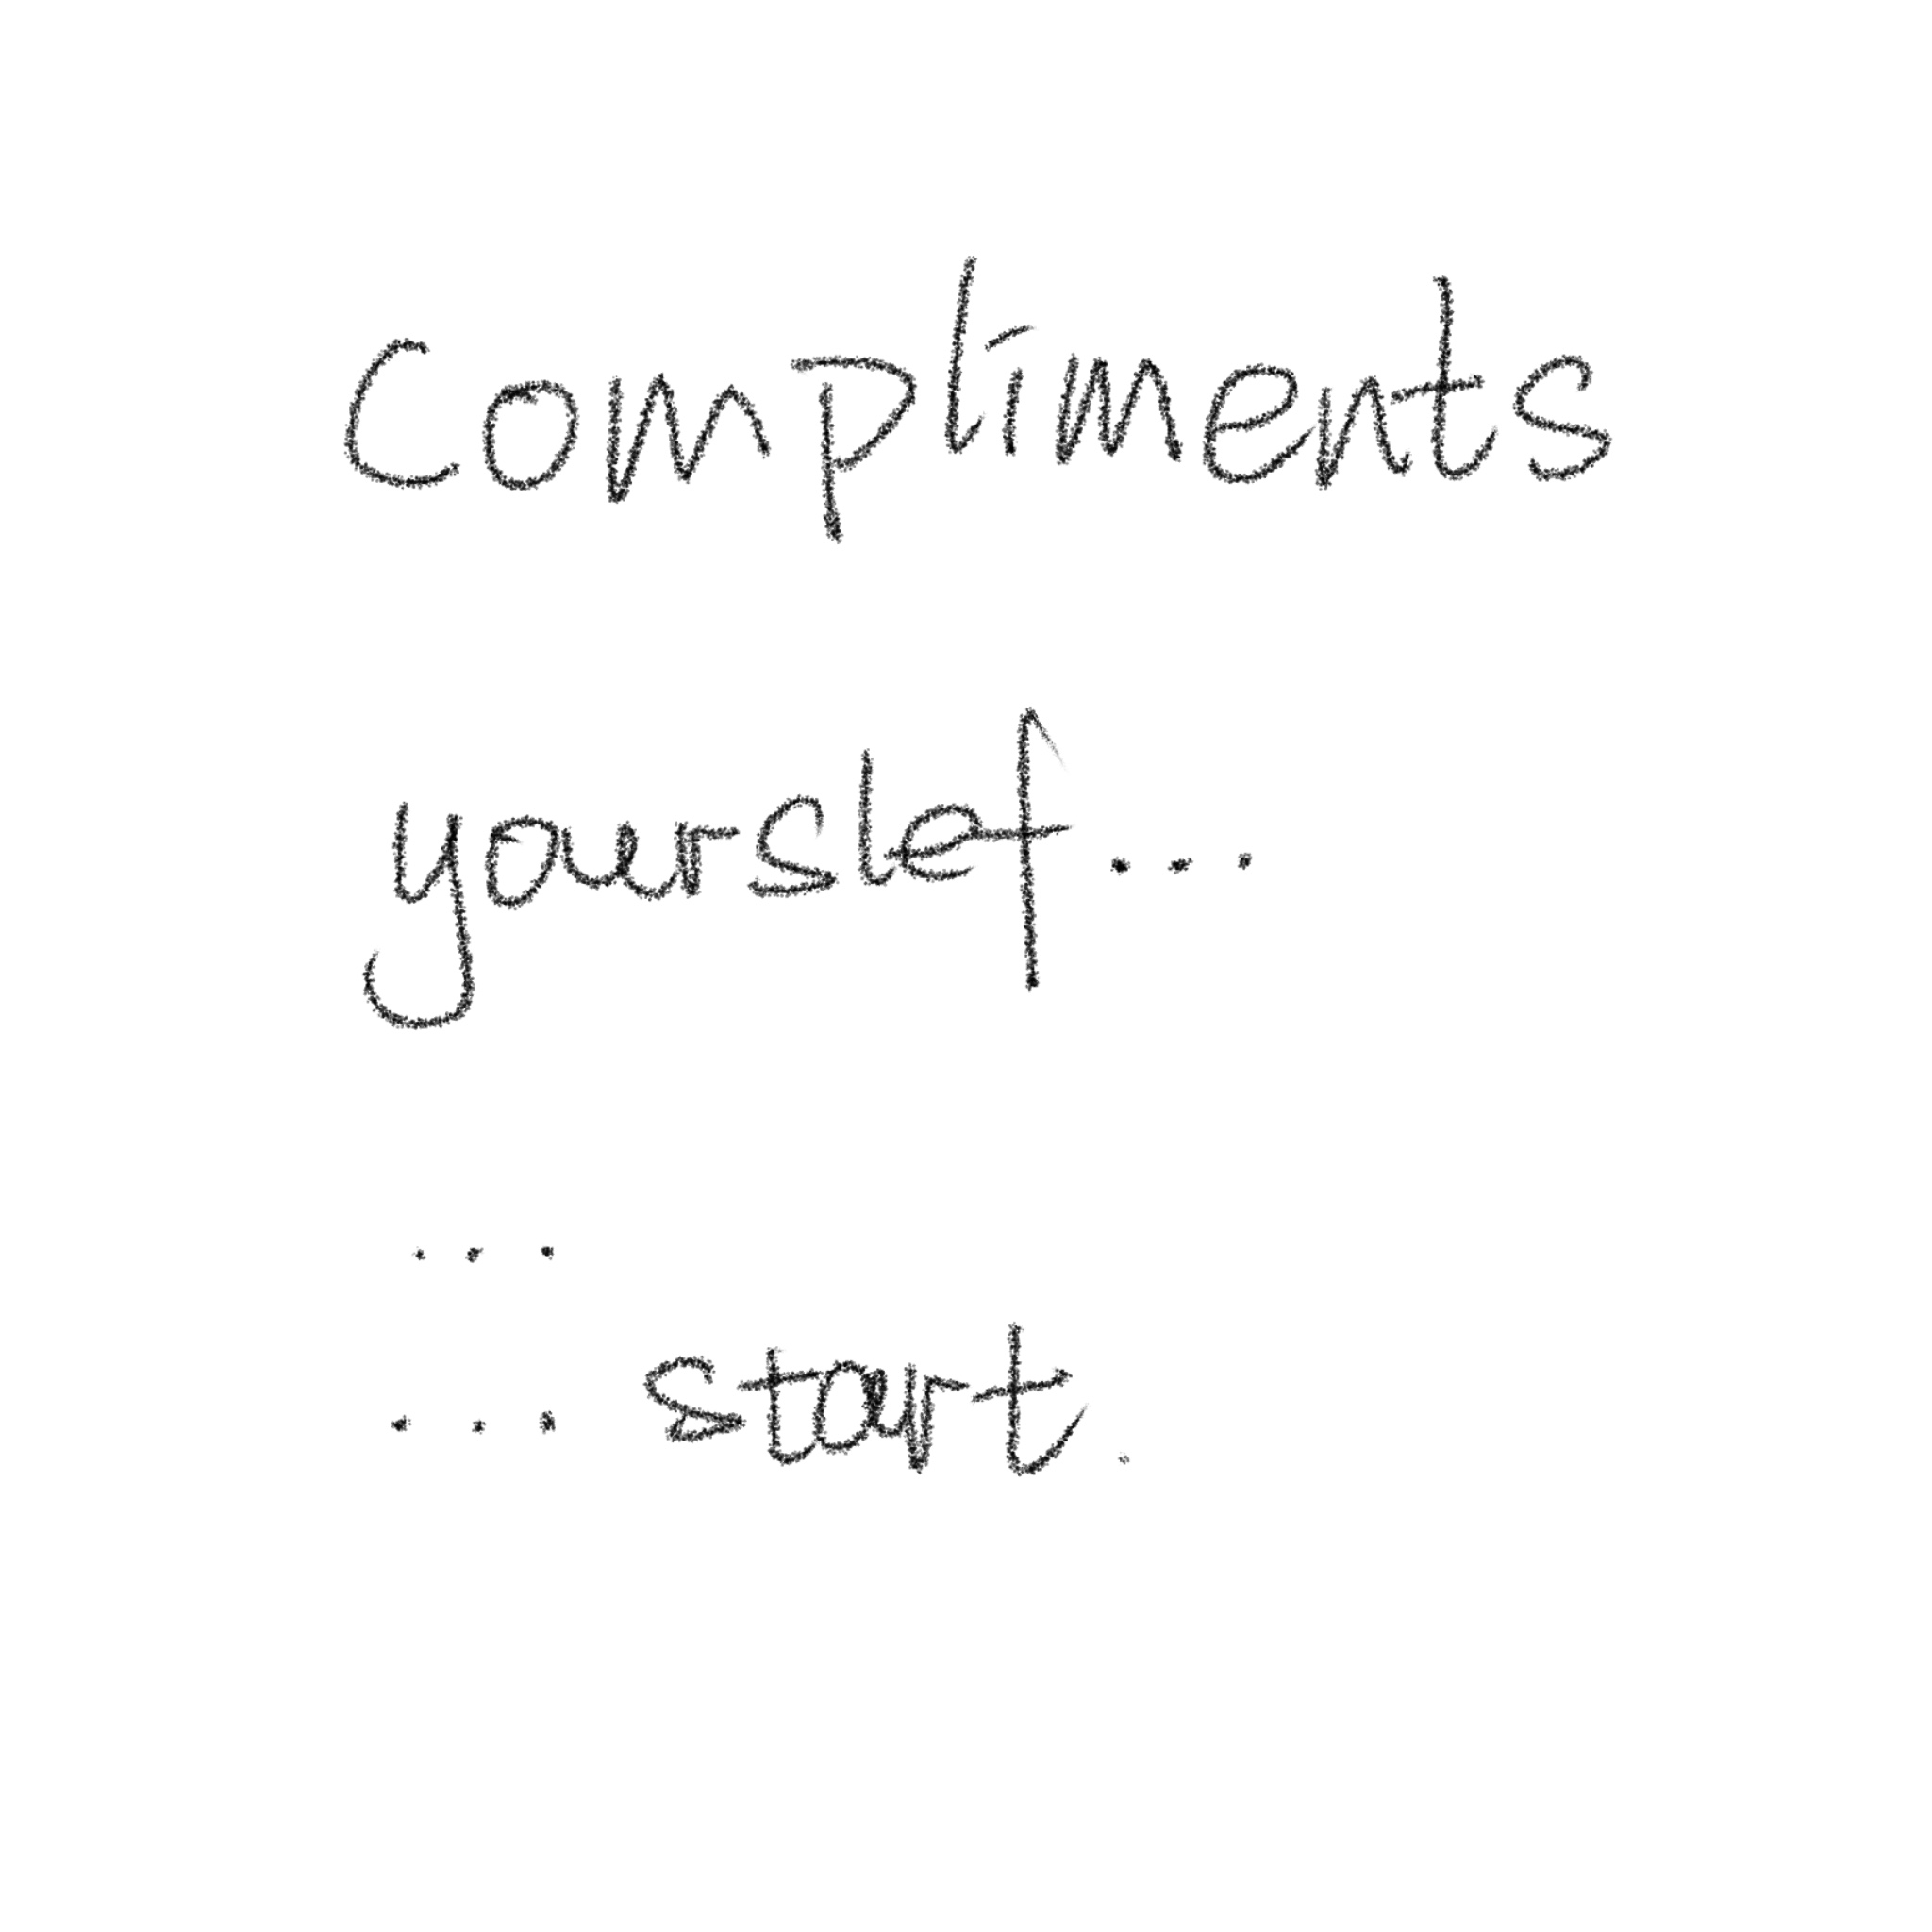 Compliments
yourslef...
...
... start.